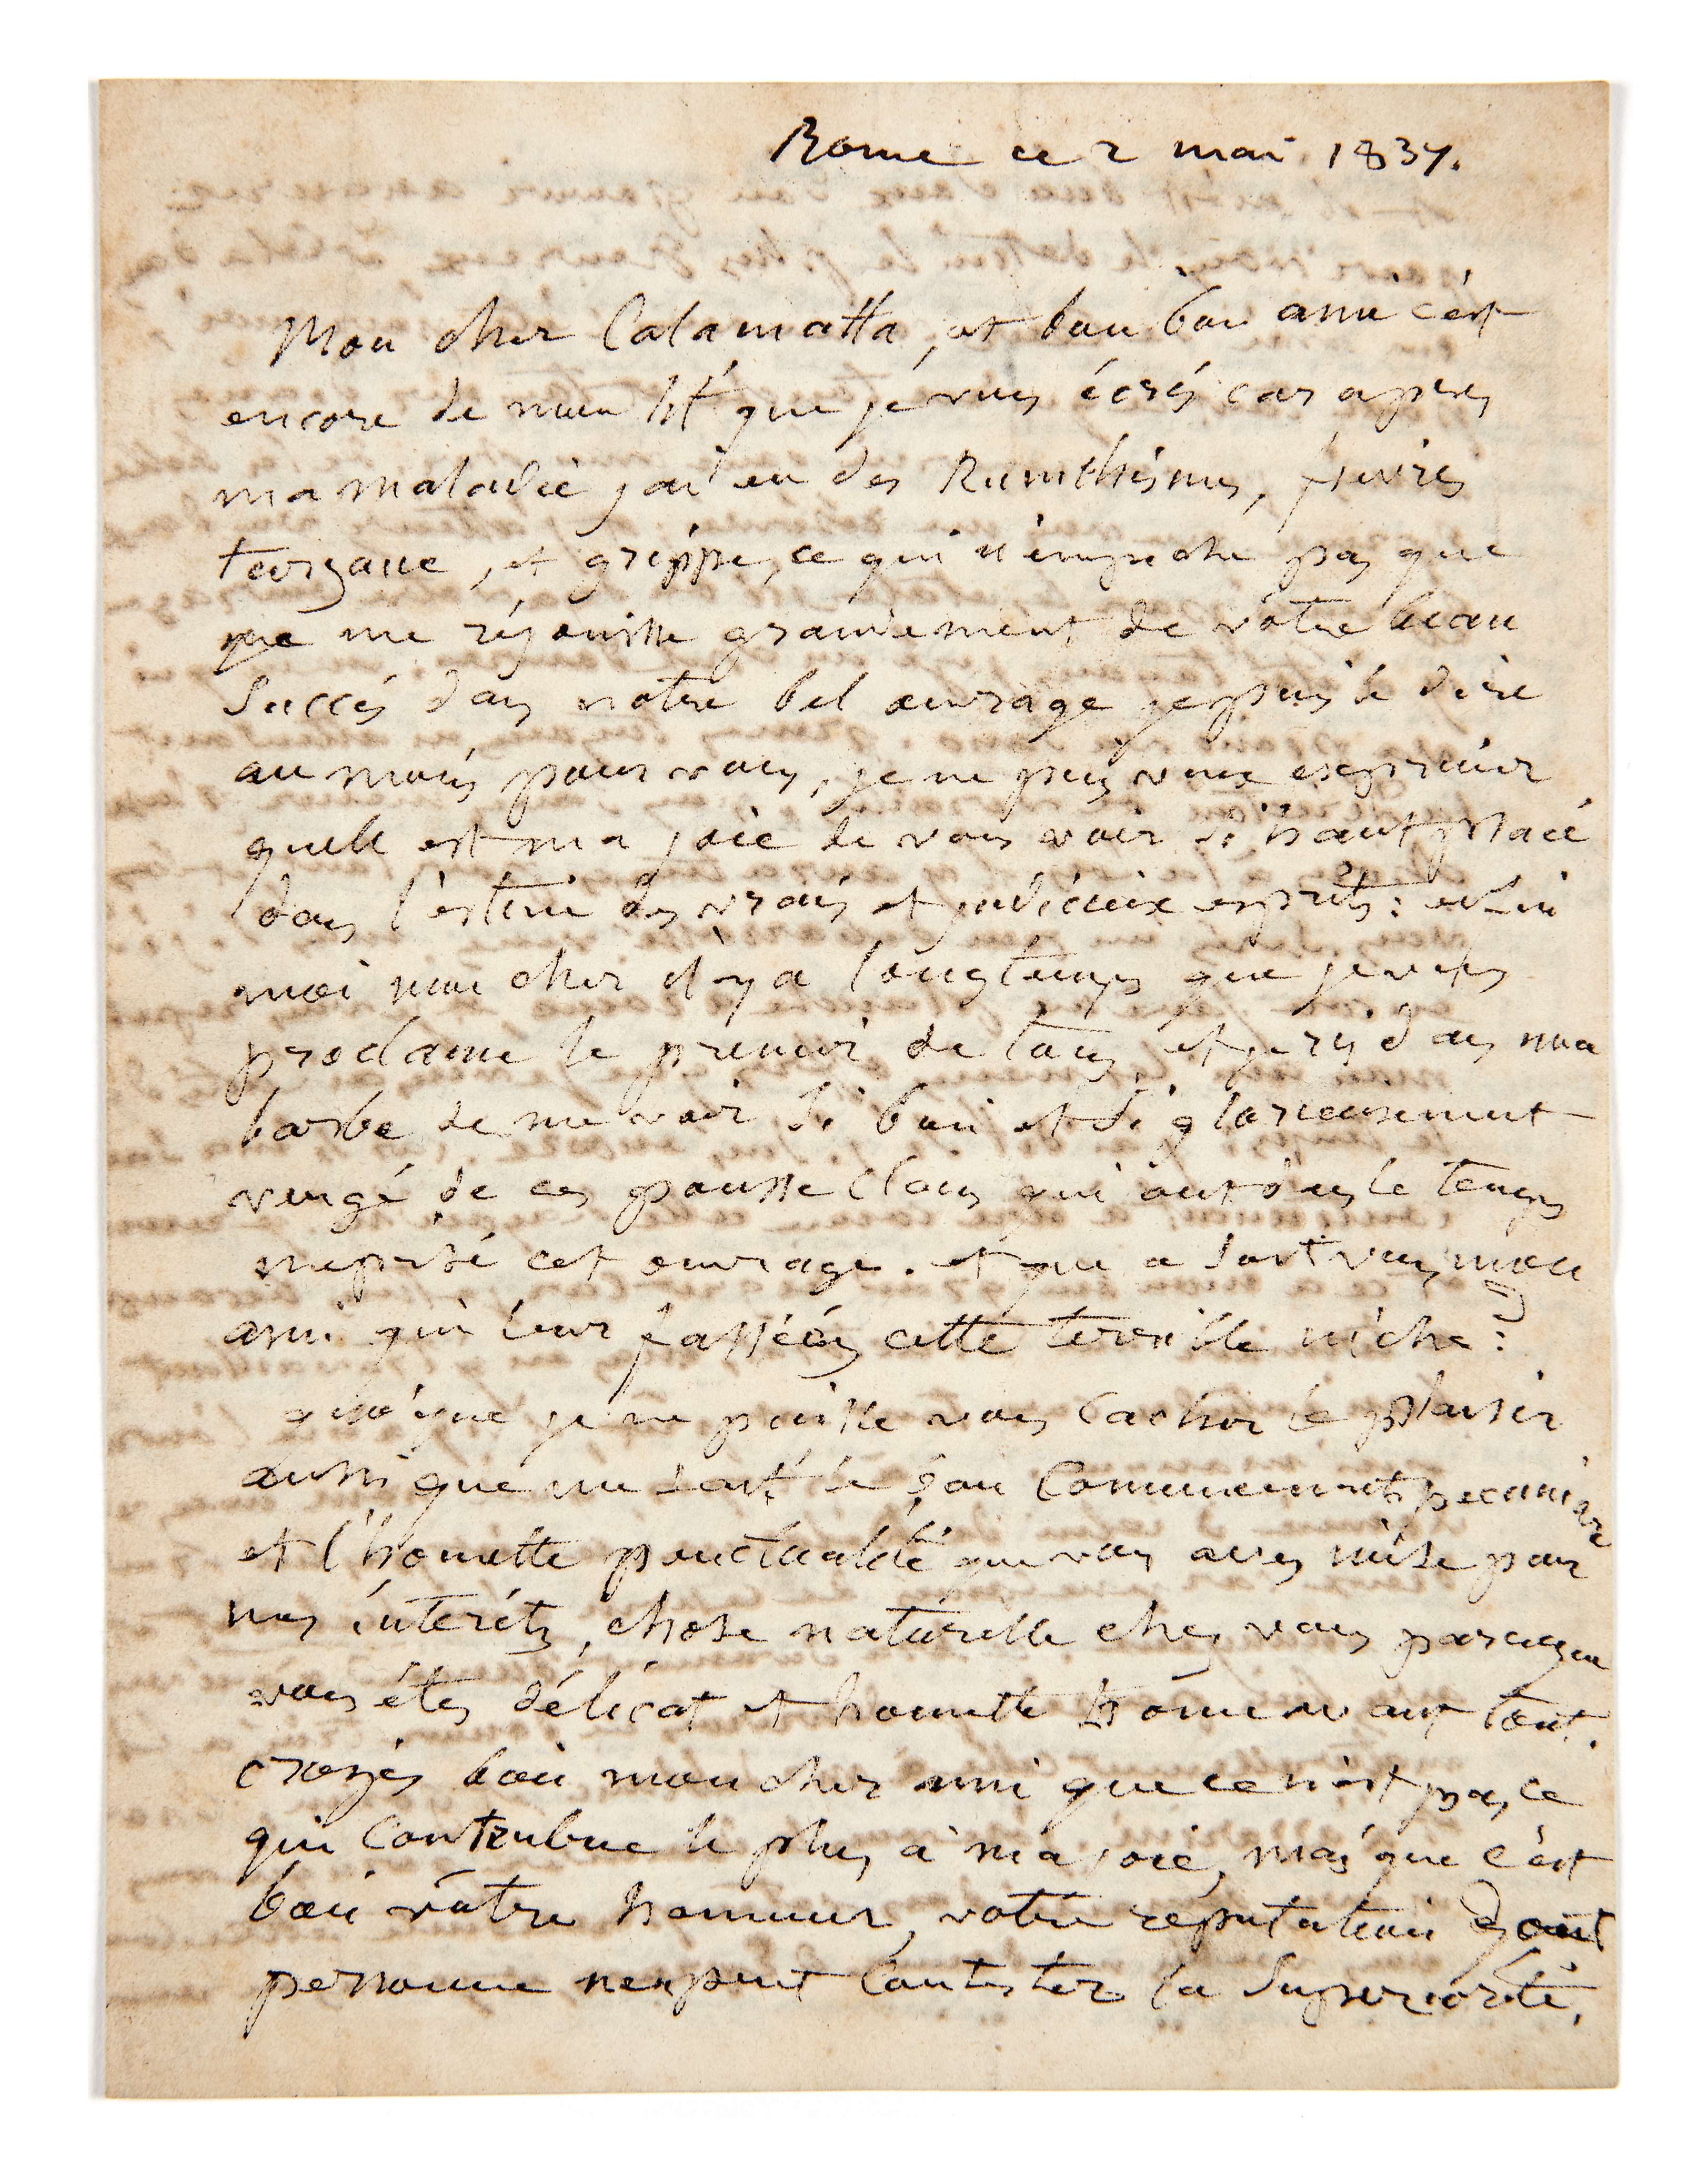 Rome ce 2 mai 1837.
Mon cher Calamatta, et bon bon ami c'est
encore de mon lit que je vous écris car apres
ma maladie j'ai eu des Rumthismes, fievres
et grippe, ce qui n'empeche pas que
me réjouisse grandement de votre beau
Succés dans notre bel ouvrage je puis le dire
au moins pour vous, je ne puis vous exprimer
quelle est ma joie de vous voir si haut placé
dans l'estime des vrais et judicieux esprits:
moi mon cher il y a longtemps que je vous
proclame le premier de tous et je ris dans ma
barbe de me voir si bien et si glorieusement
vengé de ces pousse clous qui ont dans le temps
meprisé cet ouvrage. et que ce soit vous, mon
ami qui leur fassiés cette terrible niche:
quoique je ne puisse vous cacher le plaisir
aussi que me fait le bon Commencement pecuniaire
et l'honnette ponctualité que vous avez mise pour
mes intérêts, chose naturelle chez vous parceque
vous étes délicat et honnette homme avant tout.
croyés bien mon cher ami que ce n'est pas ce
qui Contribue le plus à ma joie, mais que c'est
bien vôtre honneur, votre réputation dont
personne ne peut Contester la Superiorité,